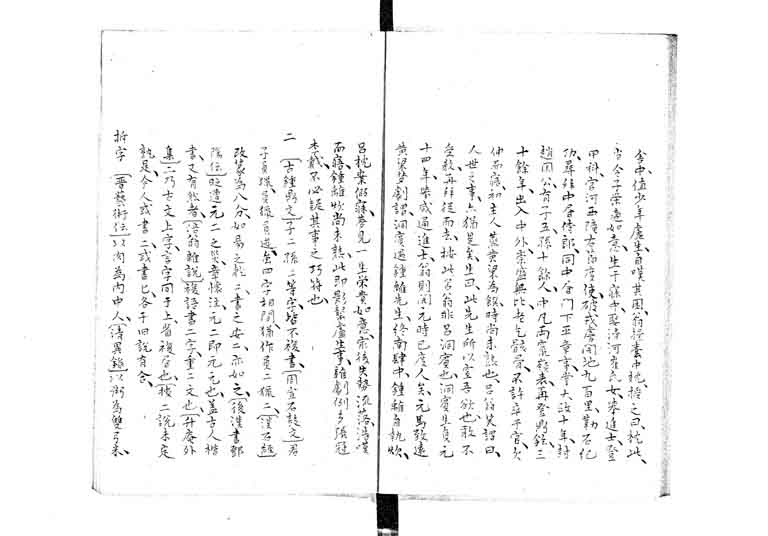 舍中值少年盧生自嘆其困翁探囊中枕授之曰枕此
當令子榮適如意生于寐中娶清河崔氏女舉進士登
甲科官河西隴右節度使破戎虜開地九百里勒石紀
功尋拜中書侍郎同中書門下平章事掌大政十年封
趙國公有子五孫十餘人中凡兩竄嶺表再登鼎鉉三
十餘年出入中外崇盛無比老乞骸骨不許卒于官欠
伸而寤初主人蒸黃粱為饌時尚未熟也呂翁笑謂曰
人世之事亦猶是矣生曰此先生所以窒吾欲也敢不
受教再拜從而去按此呂翁非呂洞賓也洞賓生貞元
十四年咸通進士翁則開元時已度人矣元馬致遠
黃粱夢劇謂洞賓遇鍾離先生終南肆中鍾離自執炊
呂枕案假寐夢見一生榮貴如意宗後失勢流落浩嘆
而寤鍾離炊尚未熟此即影盧生事雜劇例多張冠
李戴不必疑其事之巧符也
二 古鍾鼎文子二孫二等字皆不複書周宣石鼓文君
子員獵員獵員遊四字相間猶作員二獵二漢石經
改篆為八分如易之乾二書之安二亦如之後漢書鄧
隲傳時遭元二之災章懷注元二即元元也蓋古人楷
書又有然者容翁雜說複語書二字重二文也升庵外
集二乃古文上字言字同于上省複書也按二說未定
孰是今人或書二或書匕各于舊說有合
拆字 晉藝術傳以肉為內中人清異錄以粥為雙弓米